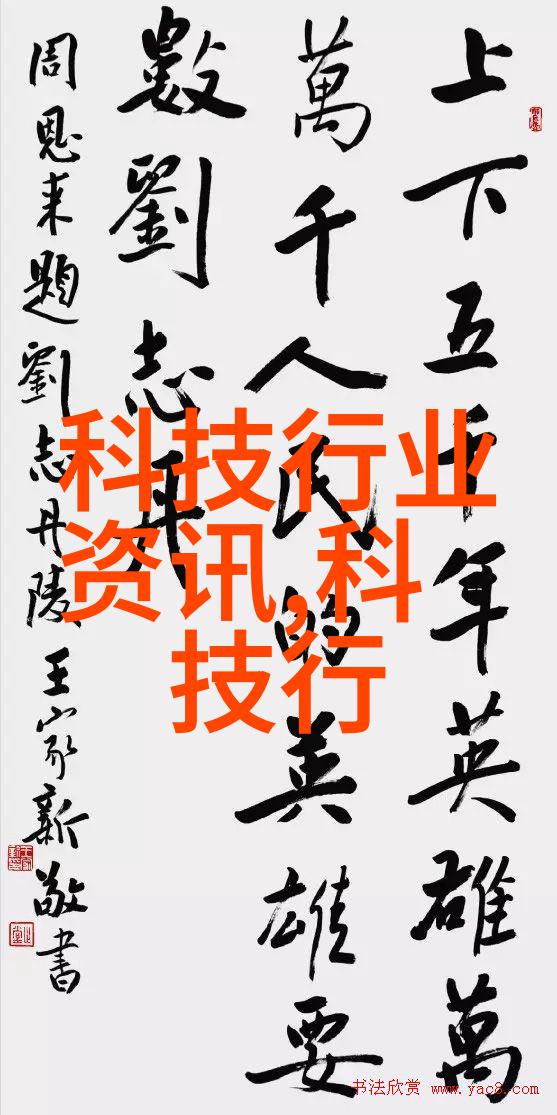 上下五千年英雄萬
萬千人民的英雄要
數劉志丹
周恩来題劉志丹陵王家新敬書
科技行业
资讯,科
技行
书法欣赏 www.yac8.com